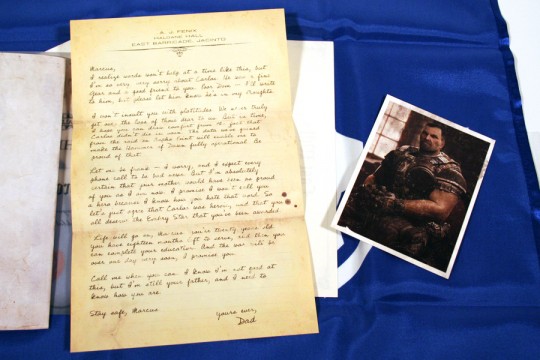 A. J. FENIX
HALDANE HALL
EAST BARRICADE, JACINTO
Marcus,
I realize words won't help at a time like this, but
I'm so very, very sorry about Carlos. He was a fine
Gear and a good friend to you. Poor Dom - I'll write
to him, but please let him know he's in my thoughts.
I won't insult you with platitudes. No one truly
gets over the loss of those dear to us. But in time,
I hope you can draw comfort from the fact that
Carlos didn't die in vain. The data we've gained
from the raid on Aspho Point will enable us to
make the Hammer of Dawn fully operational. Be
proud of that.
Let me be frank - I worry, and I expect every
phone call to be bad news. But I'm absolutely
certain that your mother would have been as proud
of you as I am now. I promise I won't call you
a hero because I know how you hate that word. So
let's just agree that Carlos was heroic, and that you
all deserve the Embry Star that you've been awarded.
Life will go on, Marcus. You're twenty years old.
You have eighteen months left to serve, and then you
can complete your education. And the war will be
over one day very soon, I promise you.
Call me when you can. I know I'm not good at
this, but I'm still your father, and I need to
know how you are.
Stay safe, Marcus
Yours ever,
Dad